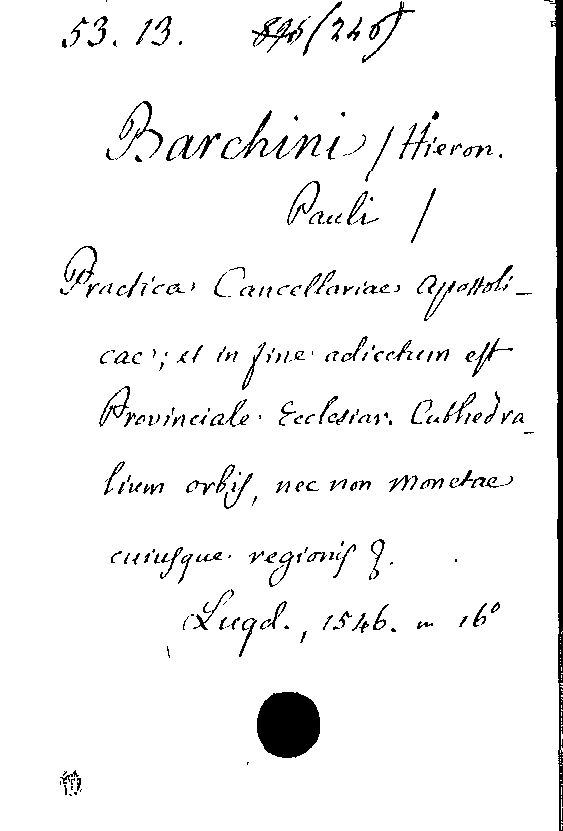 53. 13. 896 (246)
Barchini / Hieron.
Pauli /
Practica Cancellariae Apostoli-
cae; et in fine adiectum est
Provinciale Ecclesiar. Cathedra-
lium orbis, nec non monetae
cuiusque regionis
Lugd., 1546. in 16º